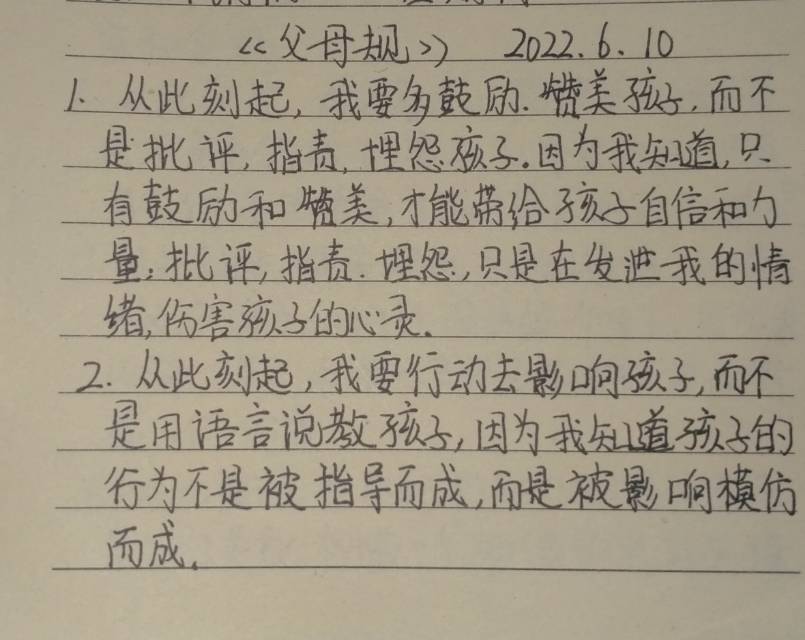 《父母规》 2022.6.10
1. 从此刻起,我要多鼓励.赞美孩子,而不
是批评,指责,埋怨孩子.因为我知道,只
有鼓励和赞美,才能带给孩子自信和力
量;批评,指责.埋怨,只是在发泄我的情
绪,伤害孩子的心灵.
2. 从此刻起,我要行动去影响孩子,而不
是用语言说教孩子,因为我知道孩子的
行为不是被指导而成,而是被影响模仿
而成.